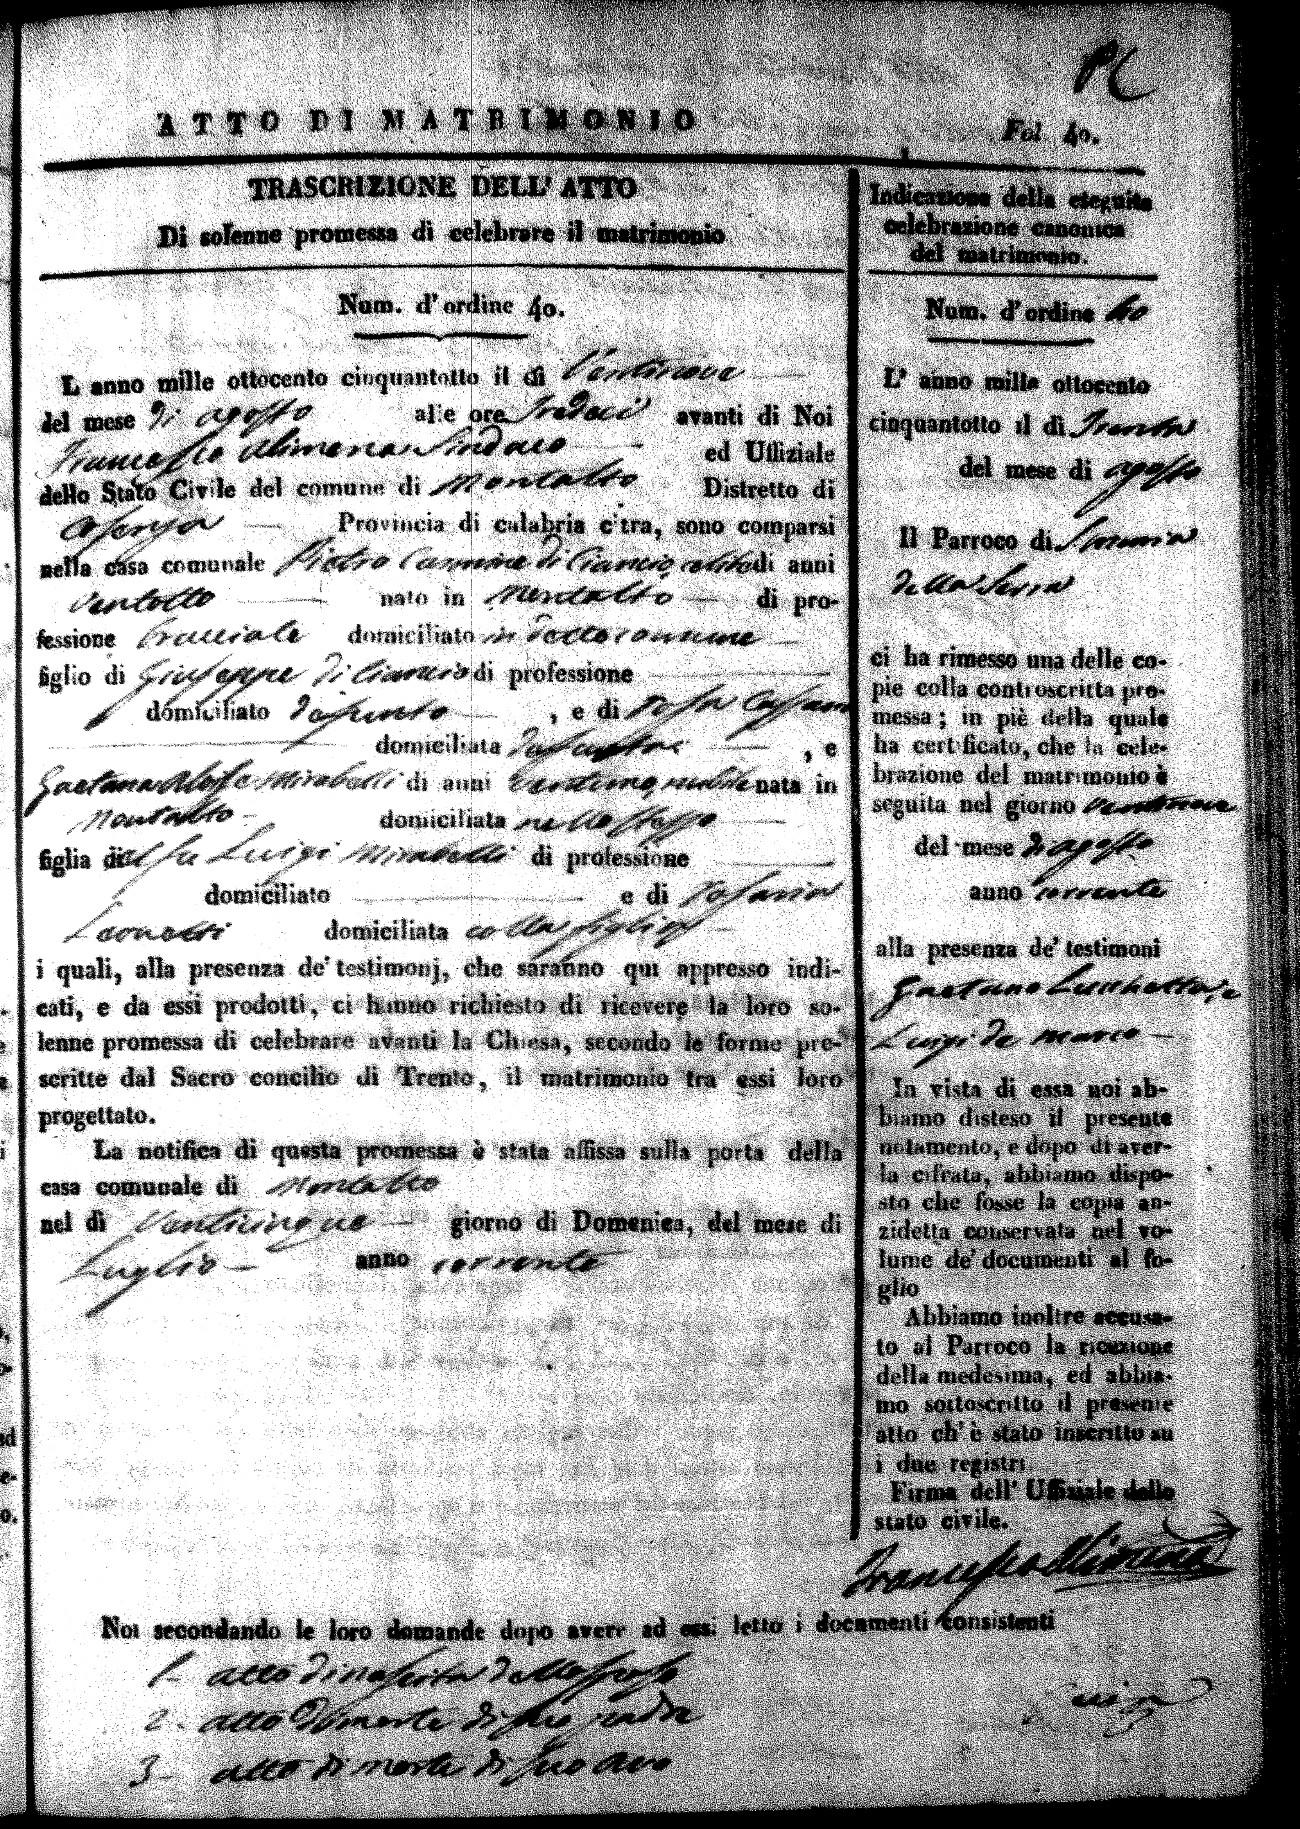 ATTO DI MATRIMONIO
Fol 40.
TRASCRIZIONE DELL' ATTO
Di solenne promessa di celebrare il matrimonio
Num. d'ordine 40.
L anno mille ottocento cinquantotto il dì Ventinove
del mese di agosto alle ore Tredeci avanti di Noi
Francesco Alimena Sindaco ed Uffiziale
dello Stato Civile del comune di Montalto Distretto di
Cosenza Provincia di calabria citra, sono comparsi
nella casa comunale Pietro Carmine di Ciancio celibe di anni
Ventotto nato in Montalto di pro-
fessione Bracciale domiciliato in detto comune
figlio di Giuseppe di Ciancio di professione
domiciliato defunto , e di Rosa
domiciliata defunta , e
Gaetana Mirabelli di anni nubile nata in
Montalto domiciliata nello stesso
figlia di Luigi Mirabelli di professione
domiciliato e di Rosaria
Leonetti domiciliata colla figlia
i quali, alla presenza de' testimonj, che saranno qui appresso indi-
cati, e da essi prodotti, ci hanno richiesto di ricevere la loro so-
lenne promessa di celebrare avanti la Chiesa, secondo le forme pre-
scritte dal Sacro concilio di Trento, il matrimonio tra essi loro
progettato.
La notifica di questa promessa è stata affissa sulla porta della
casa comunale di Montalto
nel dì Venticinque giorno di Domenica, del mese di
Luglio anno corrente
Indicazione della eseguita
celebrazione canonica
del matrimonio.
Num. d'ordine 40
L' anno mille ottocento
cinquantotto il dì Trenta
del mese di agosto
Il Parroco di S. Maria
della Serra
ci ha rimesso una delle co-
pie colla controscritta pro-
messa; in piè della quale
ha certificato, che la cele-
brazione del matrimonio è
seguita nel giorno ventinove
del mese di agosto
anno corrente
alla presenza de' testimoni
Gaetano Lucchetta, e
Luigi de Marco
In vista di essa noi ab-
biamo disteso il presente
notamento, e dopo di aver-
la cifrata, abbiamo dispo-
sto che fosse la copia an-
zidetta conservata nel vo-
lume de' documenti al fo-
glio
Abbiamo inoltre accusa-
to al Parroco la ricezione
della medesima, ed abbia-
mo sottoscritto il presente
atto ch' è stato inscritto su
i due registri
Firma dell' Uffiziale dello
stato civile.
Francesco Alimena
Noi secondando le loro domande dopo avere ad essi letto i documenti consistenti
1- atto di nascita della sposa
2. atto di morte di suo padre
3- atto di morte di suo avo